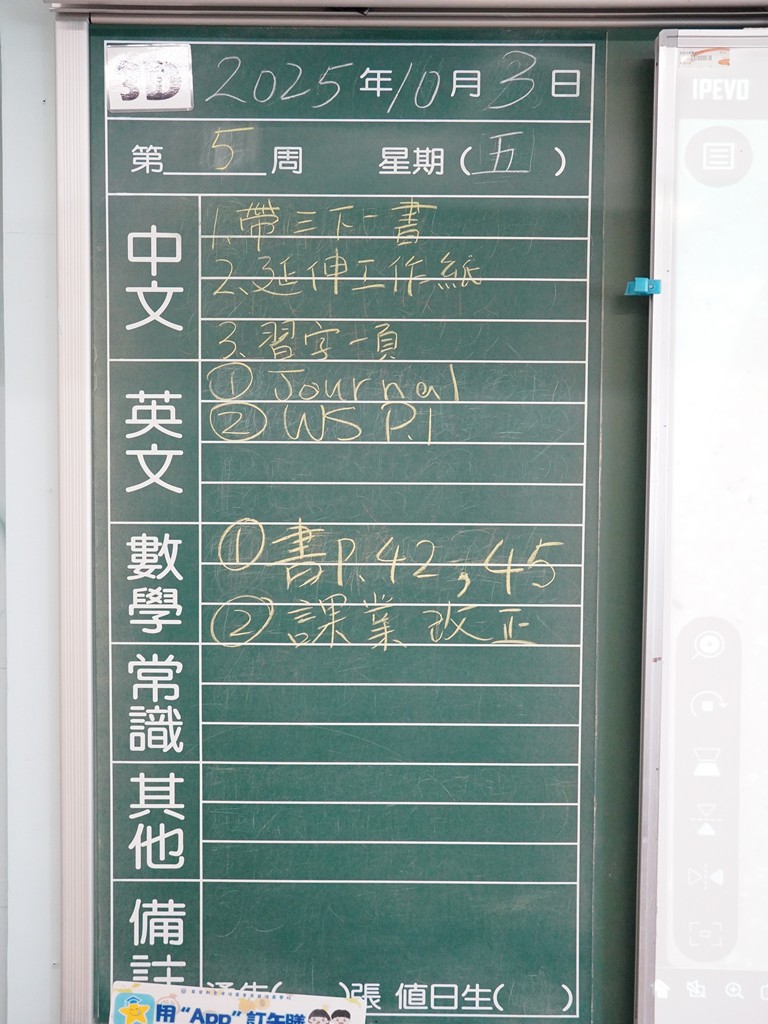 3D 2025年10月3日
第5周 星期(五)
中文
1.帶三下一書
2.延伸工作紙
3.習字一頁
英文
① Journal
② WS P.1
數學
①書P.42,45
②課業改正
常識
其他
備註
通告( )張 值日生( )
用“App”訂午膳
iPEVO